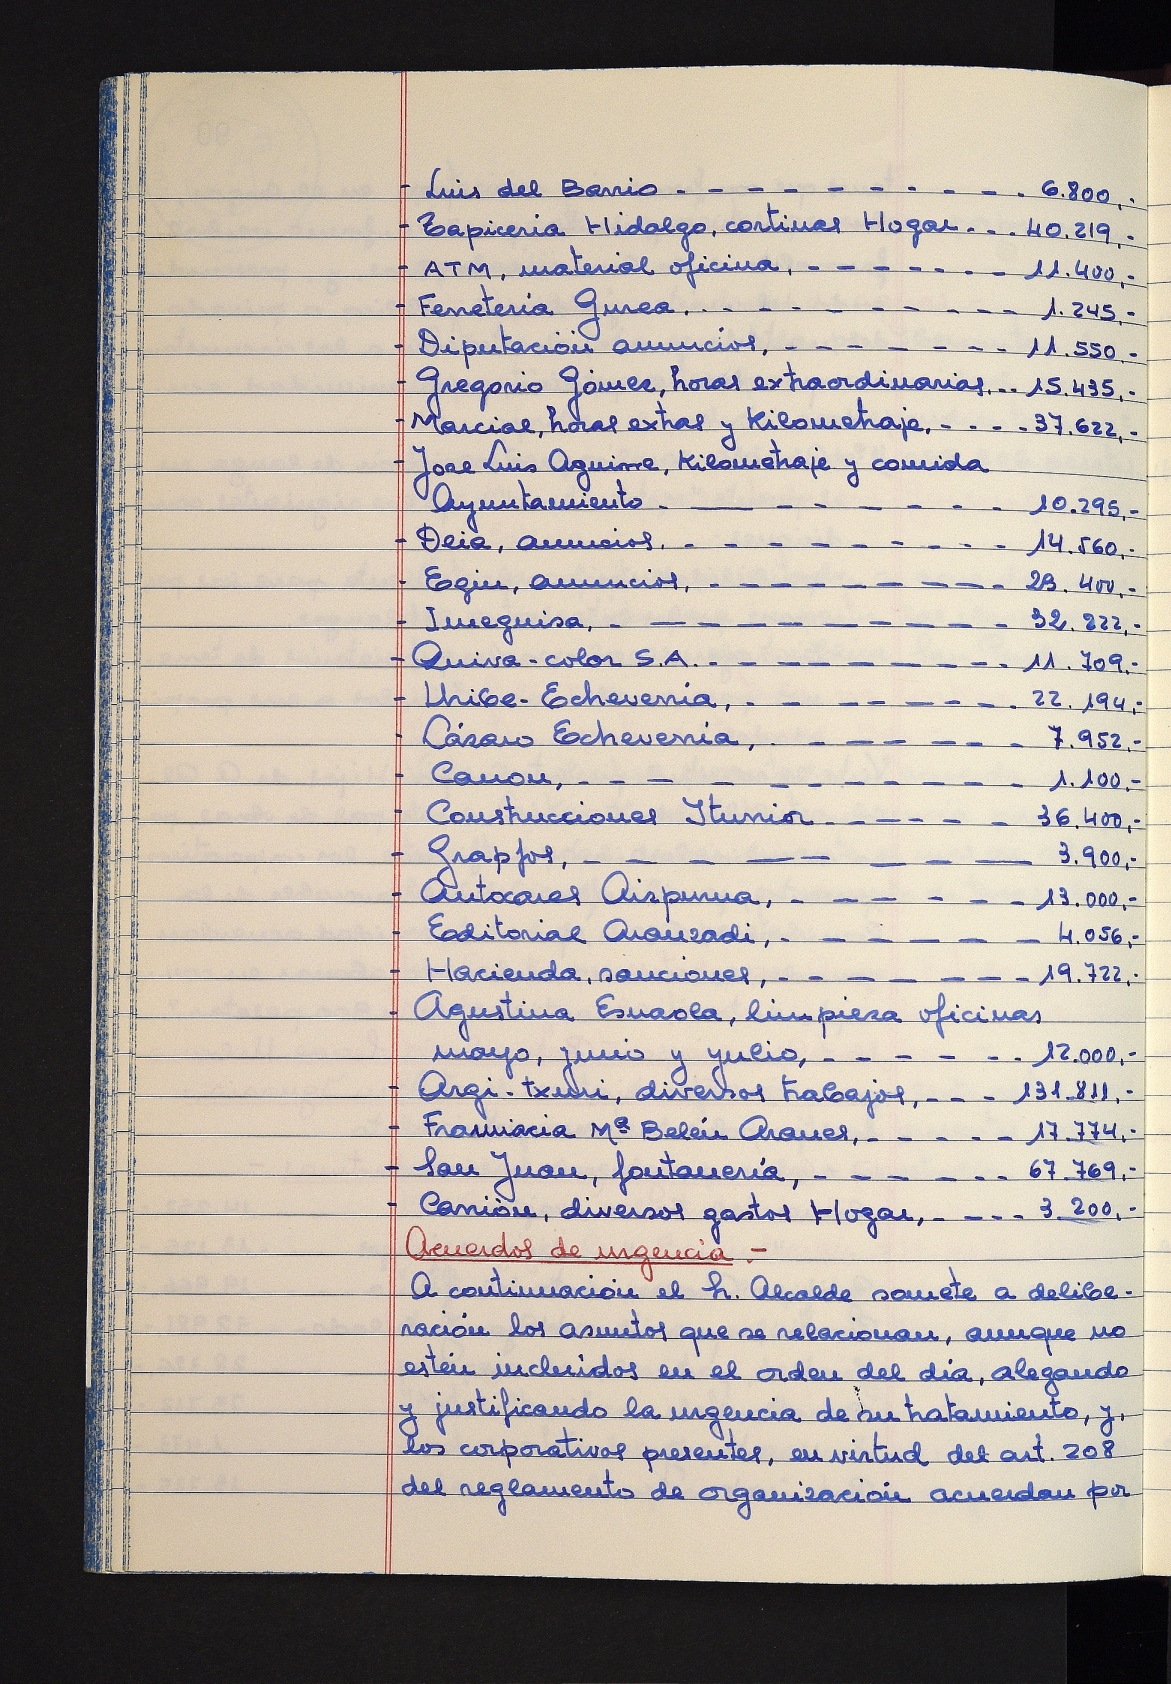 - Luis del Barrio - - - - - - - - - - 6.800,-
- Tapiceria Hidalgo, cortinas Hogar... 40.219,-
- ATM, material oficina, - - - - - - - 11.400,-
- Ferreteria Gurea, - - - - - - - - - 1.245,-
- Diputación anuncios, - - - - - - - 11.550,-
- Gregorio Gómez, horas extraordinarias... 15.435,-
- Marcial, horas extras y Kilometraje, - - - - 37.622,-
- Jose Luis Aguirre, Kilometraje y comida
Ayuntamiento - - - - - - - - - 10.295,-
- Deia, anuncios, - - - - - - - - - 14.560,-
- Egin, anuncios, - - - - - - - - - 23.400,-
- Imeguisa, - - - - - - - - - - 32.222,-
- Quiva-color S.A. - - - - - - - - - 11.709,-
- Uribe-Echeverria, - - - - - - - - 22.194,-
- Lázaro Echeverria, - - - - - - - 7.952,-
- Canon, - - - - - - - - - - 1.100,-
- Construcciones Iturrioz - - - - - - 36.400,-
- Grapfos, - - - - - - - - - 3.900,-
- Autocares Aizpurua, - - - - - - 13.000,-
- Editorial Aranzadi, - - - - - - 4.056,-
- Hacienda, sanciones, - - - - - - - 19.722,-
- Agustina Esnaola, limpieza oficinas
mayo, junio y yulio, - - - - - - 12.000,-
- Argi-txuri, diversos trabajos, - - - 131.811,-
- Framacia Mª Belén Aranes, - - - - - 17.774,-
- San Juan, fontanería, - - - - - - 67.769,-
- Carrión, diversos gastos Hogar, - - - - 3.200,-
Acuerdos de urgencia.-
A continuación el Sr. Alcalde somete a delibe-
ración los asuntos que se relacionan, aunque no
estén incluidos en el orden del día, alegando
y justificando la urgencia de su tratamiento, y,
los corporativos presentes, en virtud del art. 208
del reglamento de organización acuerdan por